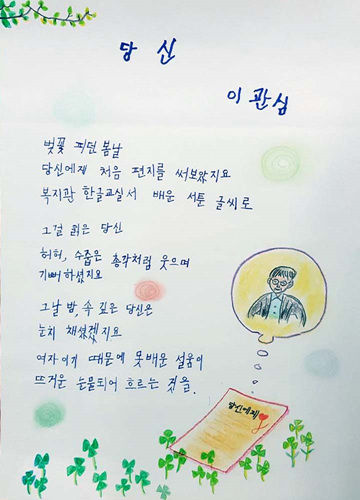 당신
이관심
벚꽃 피던 봄날
당신에게 처음 편지를 써보았지요
복지관 한글교실서 배운 서툰 글씨로
그걸 읽은 당신
허허, 수줍은 총각처럼 웃으며
기뻐하셨지요
그날 밤, 속 깊은 당신은
눈치 채셨겠지요
여자이기 때문에 못배운 설움이
뜨거운 눈물되어 흐르는 것을.
당신에게